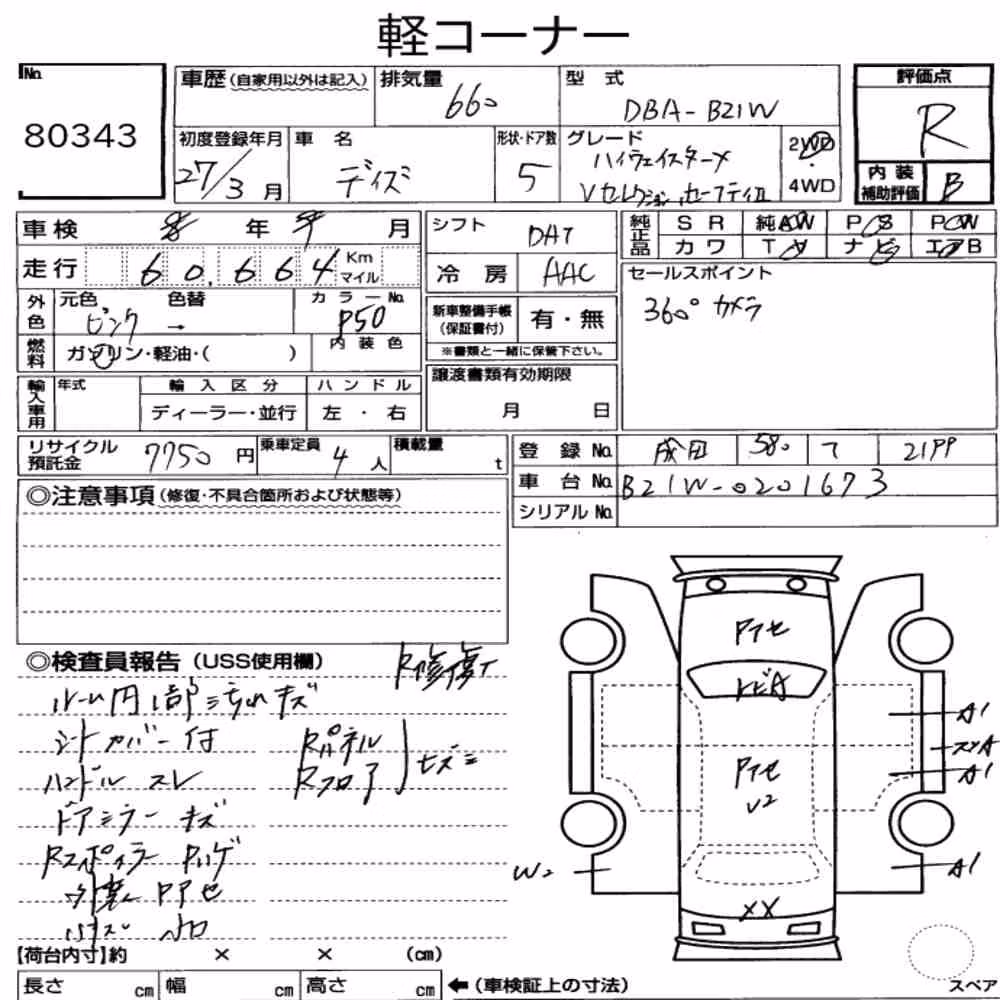 軽コーナー
No.
80343
車歴 (自家用以外は記入)
排気量
660
型 式
DBA-B21W
評価点
R
初度登録年月
27/3 月
車 名
デイズ
形状・ドア数
5
グレード
ハイウェイスターX
Vセレクション セーフティII
2WD
・
4WD
内 装
補助評価
B
車検
年
月
シフト
DAT
純正品
S R
純AW
P/S
P/W
カ ワ
T V
ナ ビ
エアB
走行
60,664
Km
マイル
冷 房
AAC
セールスポイント
360° カメラ
外色
元色
色替
ピンク →
カラーNo.
P50
新車整備手帳
(保証書付)
有・無
※書類と一緒に保管下さい。
燃料
ガソリン・軽油・( )
内 装 色
譲渡書類有効期限
月 日
輸入車用
年式
輸 入 区 分
ディーラー・並行
ハ ン ド ル
左 ・ 右
リサイクル
預託金
7750 円
乗車定員
4 人
積載量
t
登 録 No.
成田
580
21PP
車 台 No.
B21W-0201673
シリアル No.
◎注意事項(修復・不具合箇所および状態等)
◎検査員報告 (USS使用欄)
R修復
ルーム内 部 ミ キズ
シートカバー付
Rパネル
Rフロア
ハンドル スレ
ドアミラー キズ
Rスポイラー Pハゲ
外装 PアセP
アセ
トビA
Pアセ
U2
XX
A1
A1
A1
W2
【荷台内寸】約 × × (cm)
長さ cm
幅 cm
高さ cm
←(車検証上の寸法)
スペア